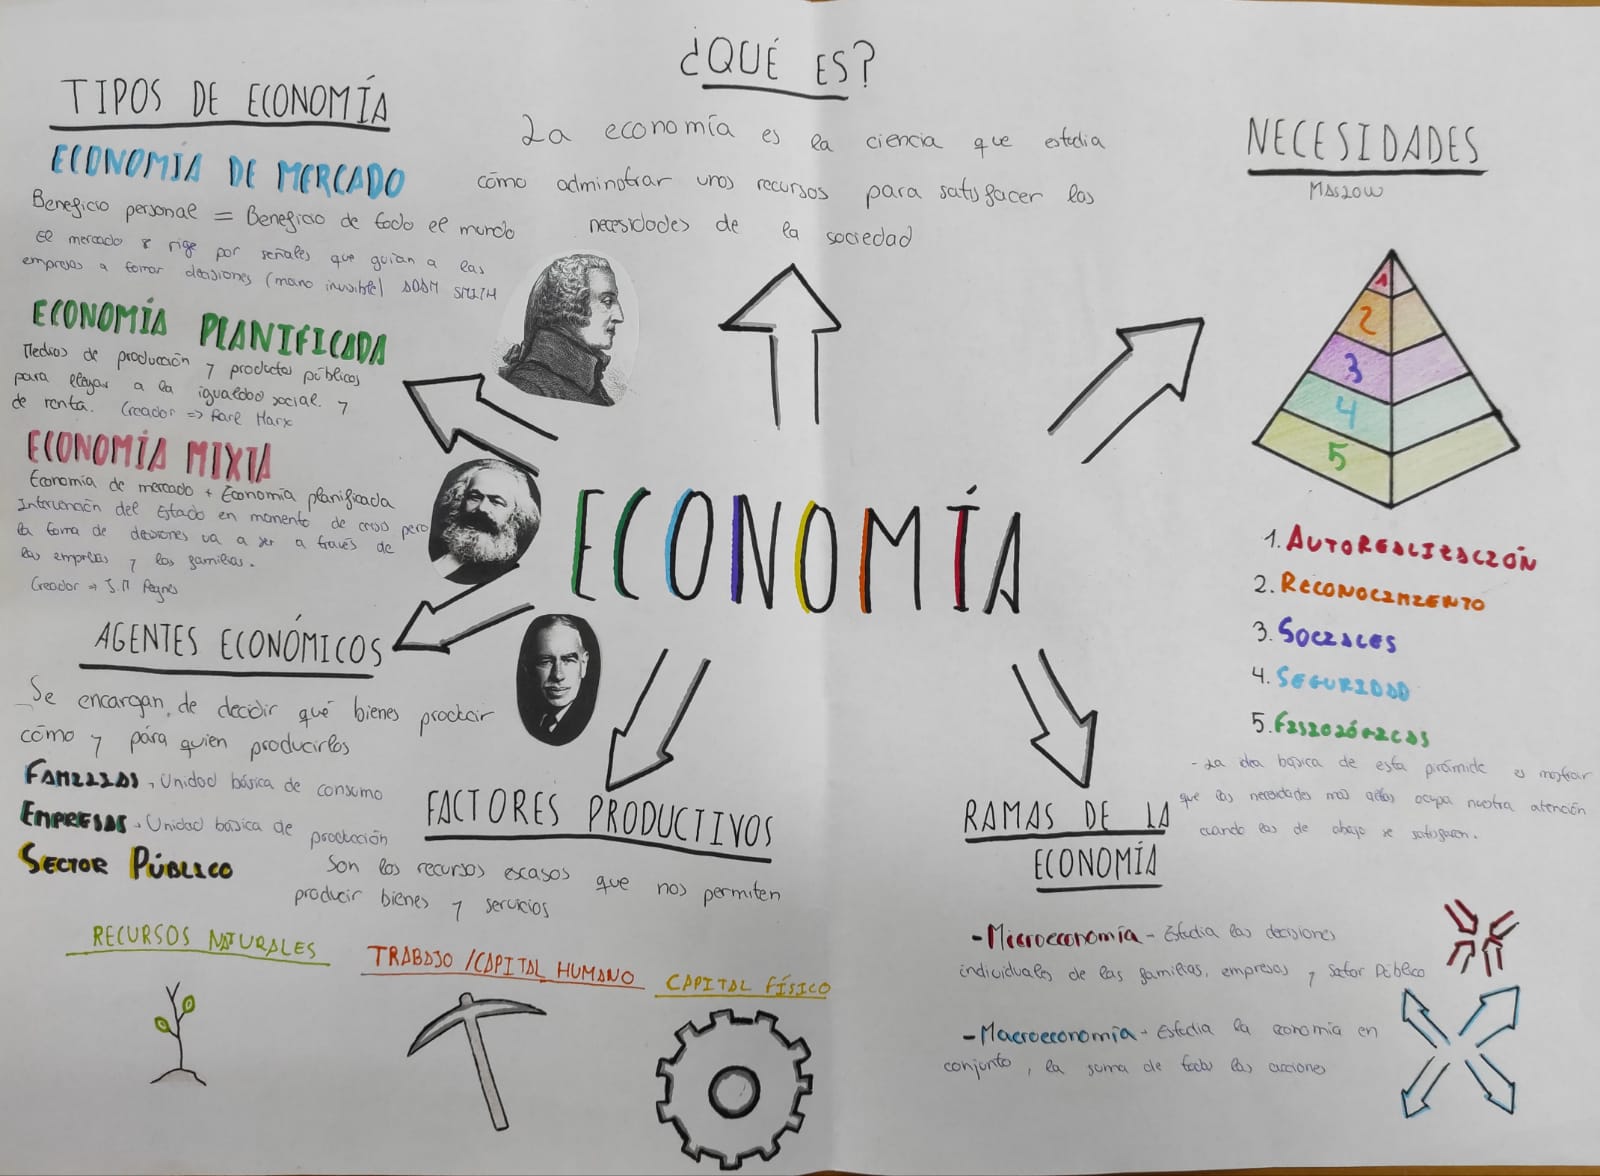 ¿QUÉ ES?
La economía es la ciencia que estudia
cómo administrar unos recursos para satisfacer las
necesidades de la sociedad
TIPOS DE ECONOMÍA
ECONOMÍA DE MERCADO
Beneficio personal = Beneficio de todo el mundo
El mercado se rige por señales que guían a las
empresas a tomar decisiones (mano invisible) ADAM SMITH
ECONOMÍA PLANIFICADA
Medios de producción y productos públicos
para llegar a la igualdad social y
de renta. Creador => Karl Marx
ECONOMÍA MIXTA
Economía de mercado + Economía planificada
Intervención del Estado en momento de crisis pero
la toma de decisiones va a ser a través de
las empresas y las familias.
Creador → J.M Keynes
NECESIDADES
MASLOW
1
2
3
4
5
1. AUTORREALIZACIÓN
2. RECONOCIMIENTO
3. SOCIALES
4. SEGURIDAD
5. FISIOLÓGICAS
- La idea básica de esta pirámide es mostrar
que las necesidades más altas ocupa nuestra atención
cuando las de abajo se satisfacen.
ECONOMÍA
AGENTES ECONÓMICOS
Se encargan de decidir qué bienes producir
cómo y pára quien producirlos
FAMILIAS → Unidad básica de consumo
EMPRESAS → Unidad básica de producción
SECTOR PÚBLICO
FACTORES PRODUCTIVOS
Son los recursos escasos que nos permiten
producir bienes y servicios
RECURSOS NATURALES
TRABAJO /CAPITAL HUMANO
CAPITAL FÍSICO
RAMAS DE LA
ECONOMÍA
- Microeconomía - Estudia las decisiones
individuales de las familias, empresas y sector Público
- Macroeconomía → Estudia la economía en
conjunto, la suma de todas las acciones